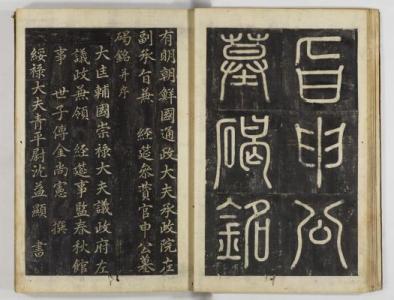 旨申公
墓碣銘
有明朝鮮國通政大夫承政院左
副承旨兼 經筵參贊官申公墓
碣銘并序
大匡輔國崇祿大夫議政府左
議政兼領 經筵事監春秋館
事 世子傅金尚憲 撰
綏祿大夫青平尉沈益顯 書